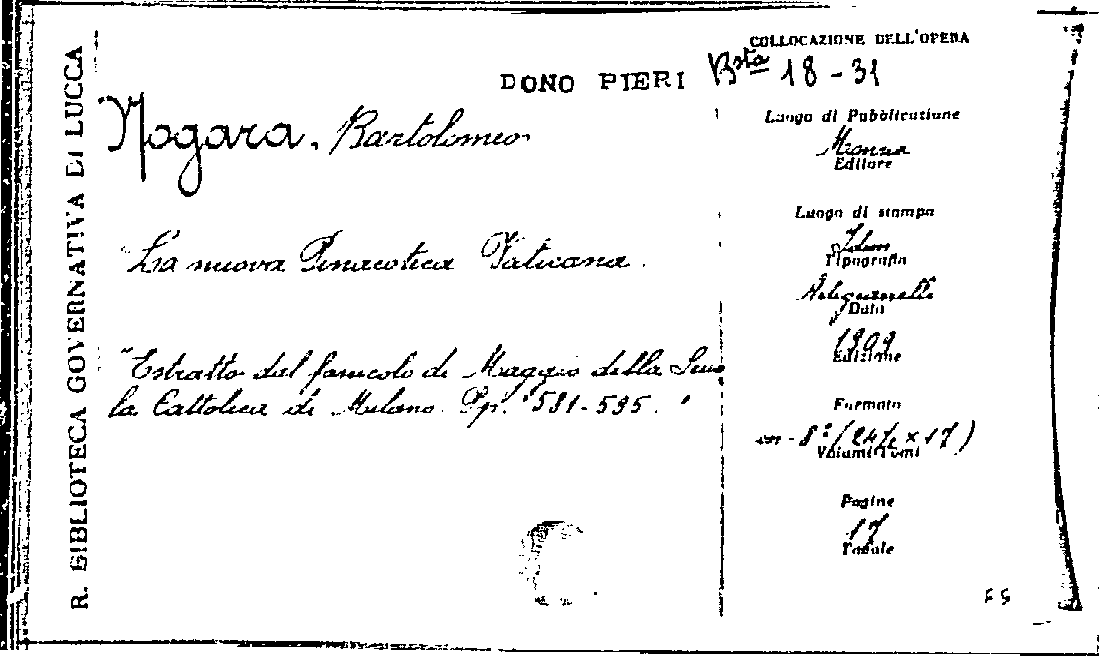 R. BIBLIOTECA GOVERNATIVA DI LUCCA
COLLOCAZIONE DELL'OPERA
DONO PIERI Bsta 18-31
Nogara, Bartolomeo
La nuova Pinacoteca Vaticana.
"Estratto dal fascicolo di Maggio della Scuo
la Cattolica di Milano. Pp. 581-595."
Luogo di Pubblicazione
Monza
Editore
Luogo di stampa
Idem
Tipografia
Artigianelli
Data
1909
Edizione
Formato
in-8° (24½ x 17)
Volumi Tomi
Pagine
17
Tavole